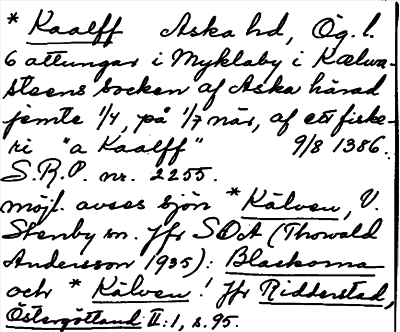 * Kaalff Aska hd, Ög. l.
6 attungar i Myklaby i Kælwa-
steens socken af Aska härad
jemte 1/4, på 1/7 när, af ett fiske-
ri "a Kaalff" 9/8 1386.
S.R.P. nr. 2255.
möjl. avses sjön * Kälven, V.
Stenby sn. Jfr SOA (Thorvald
Andersson 1935): Blaskorna
och * Kälven! Jfr Ridderstad,
Östergötland II:1, s. 95.